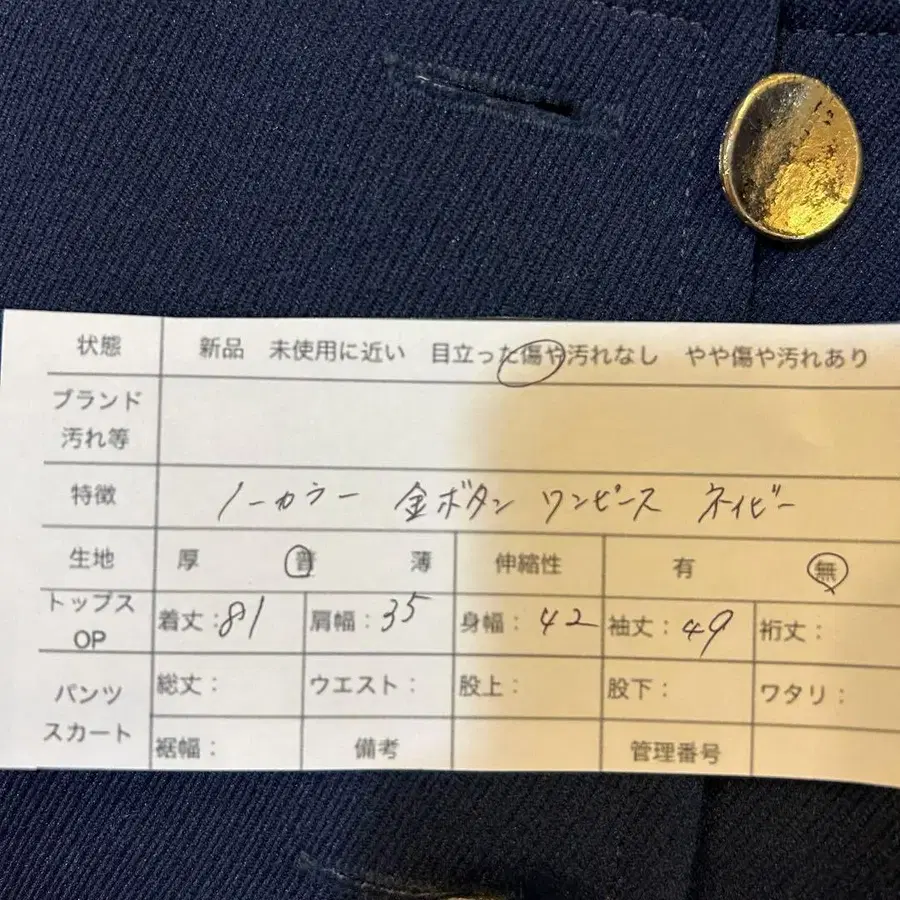 状態 新品 未使用に近い 目立った傷や汚れなし やや傷や汚れあり
ブランド
汚れ等
特徴 ノーカラー 金ボタン ワンピース ネイビー
生地 厚 普 薄 伸縮性 有 無
トップス
OP
着丈:81 肩幅:35 身幅:42 袖丈:49 裄丈:
パンツ
スカート
総丈: ウエスト: 股上: 股下: ワタリ:
裾幅: 備考 管理番号